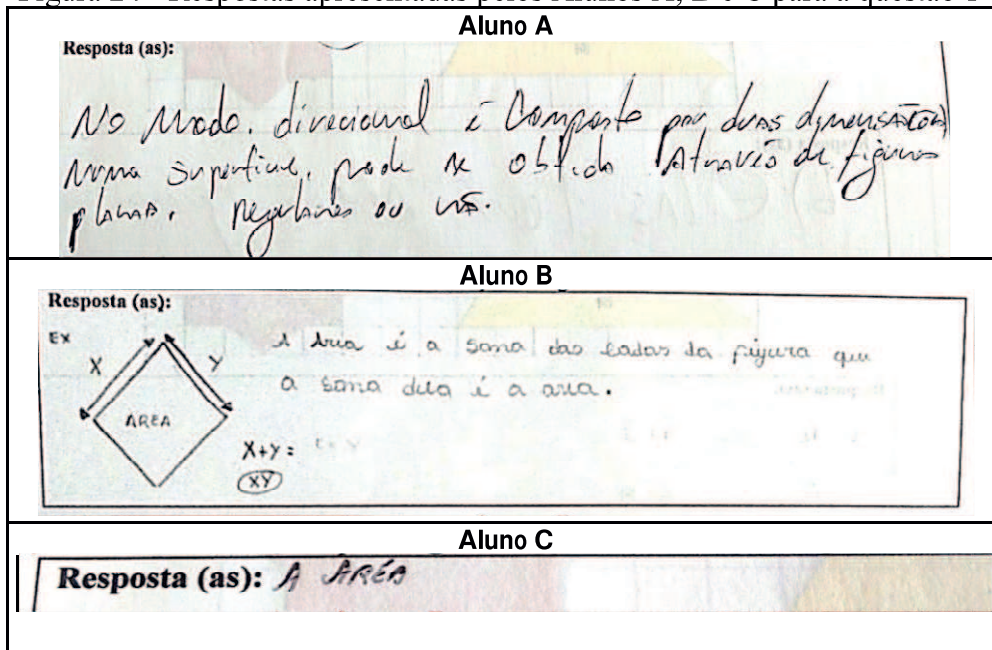 Aluno A
Resposta (as):
No modo. direcional é Composto por duas dimensões
numa superficie, pode se obtido Através de figuras
planas. regulares ou não.
Aluno B
Resposta (as):
Ex
X
Y
AREA
A Area é a soma dos lados da figura que
a soma dela é a area.
X+Y=
XY
Aluno C
Resposta (as): A ÁREA